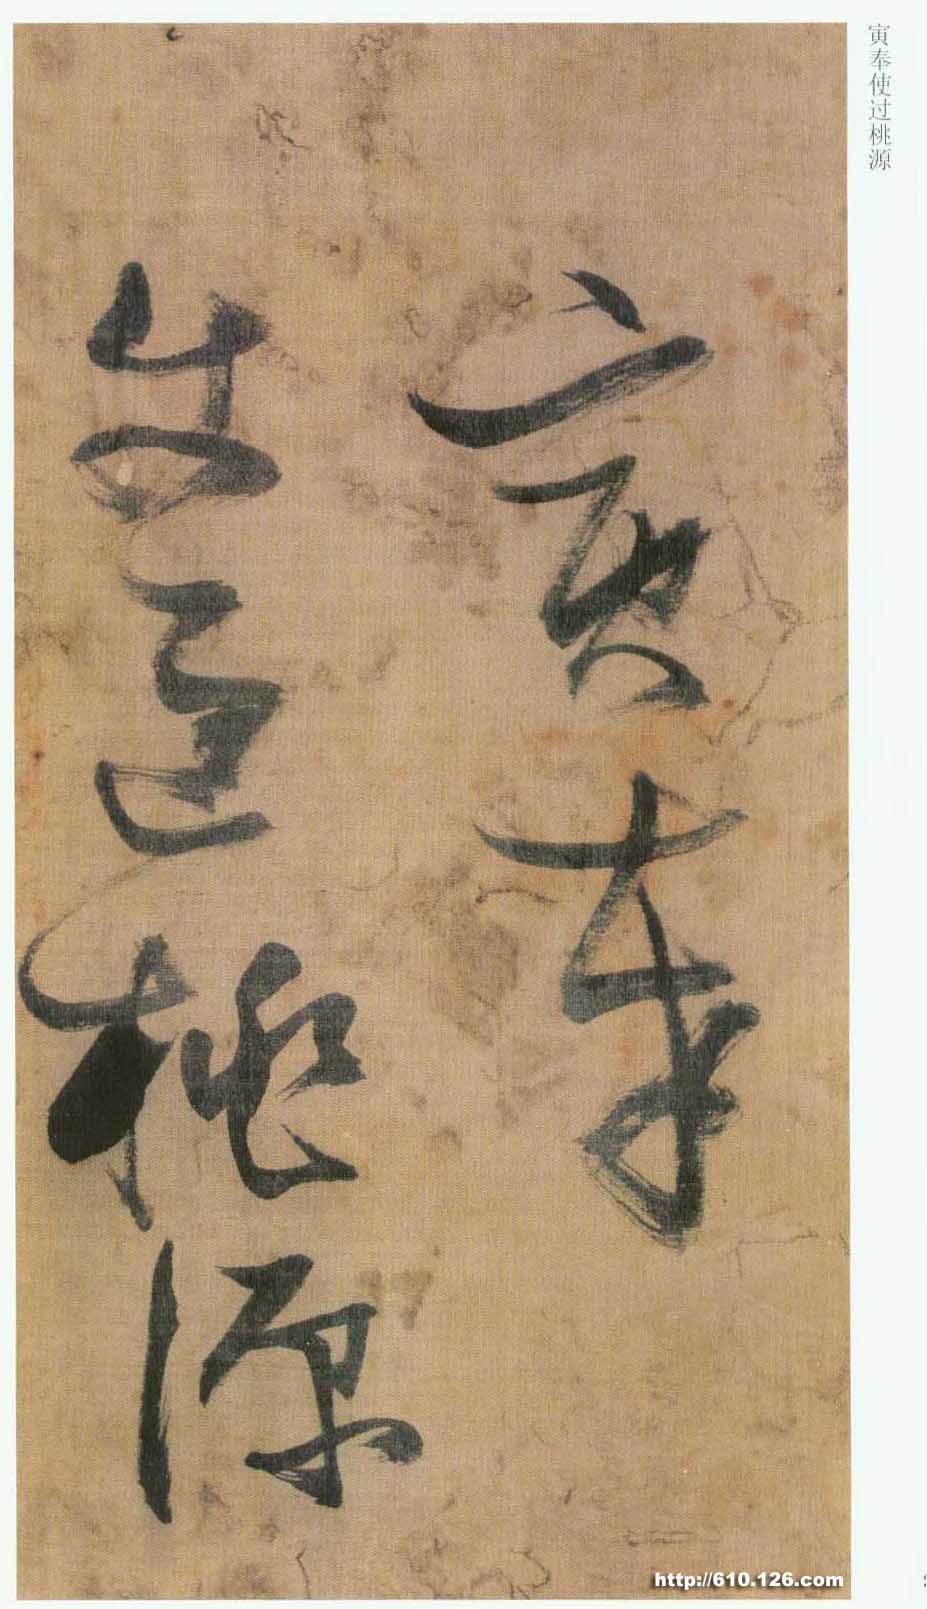 寅奉使过桃源
寅奉
使過桃源
http://610.126.com